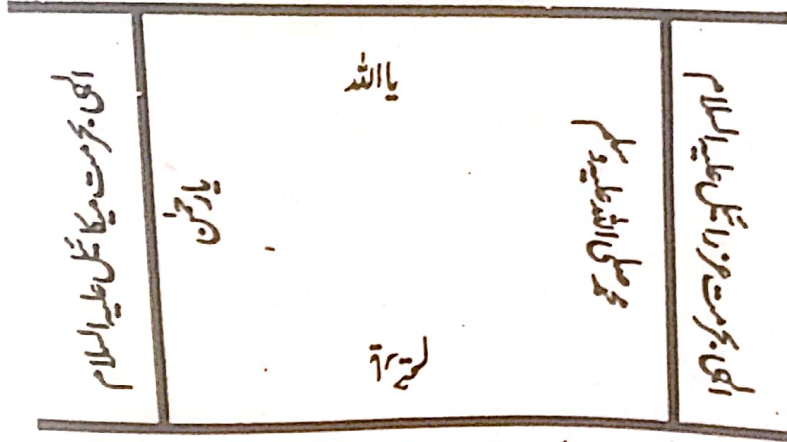 یا اللہ
الٰہی بحرمت عزرائیل علیہ السلام
محمد صلی اللہ علیہ وسلم
یا رحمٰن
الٰہی بحرمت میکائیل علیہ السلام